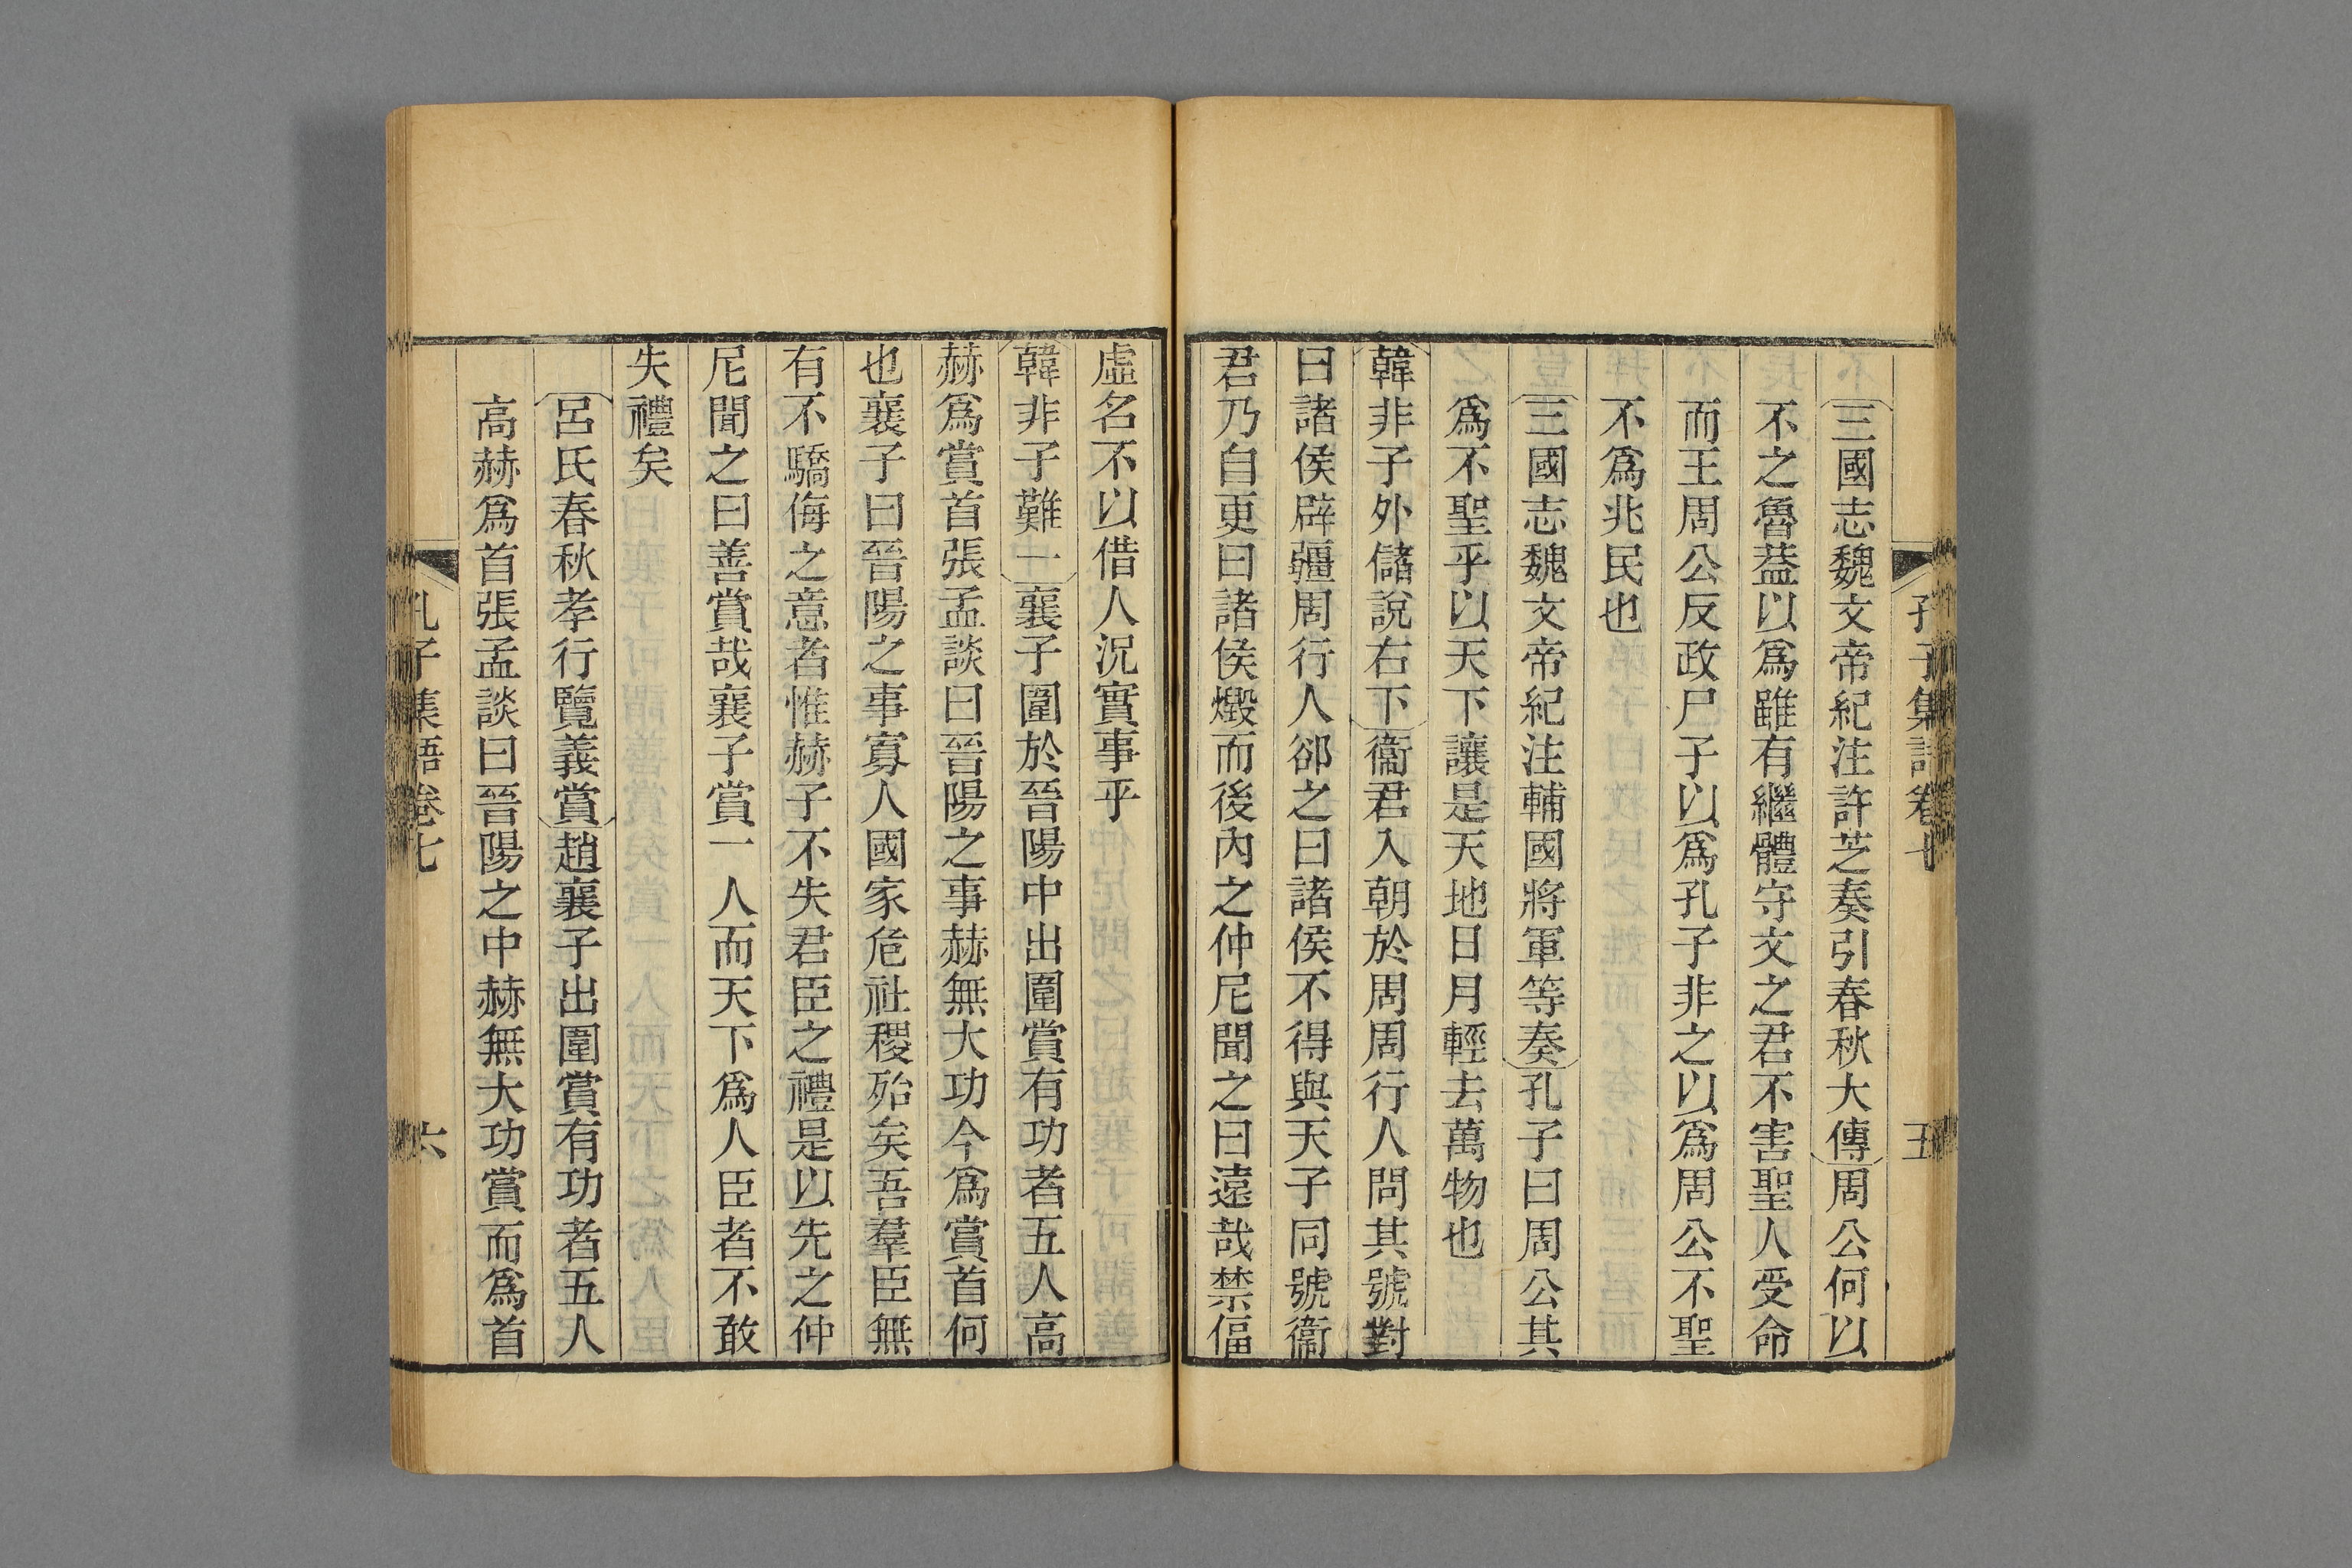 孔子集語卷七
五
三國志魏文帝紀注許芝奏引春秋大傳周公何以
不之魯葢以爲雖有繼體守文之君不害聖人受命
而王周公反政尸子以爲孔子非之以爲周公不聖
不爲兆民也
三國志魏文帝紀注輔國將軍等奏孔子曰周公其
爲不聖乎以天下讓是天地日月輕去萬物也
韓非子外儲說右下衞君入朝於周周行人問其號對
曰諸侯辟疆周行人卻之曰諸侯不得與天子同號衞
君乃自更曰諸侯燬而後內之仲尼聞之曰遠哉禁偪
虛名不以借人況實事乎
韓非子難一襄子圍於晉陽中出圍賞有功者五人高
赫爲賞首張孟談曰晉陽之事赫無大功今爲賞首何
也襄子曰晉陽之事寡人國家危社稷殆矣吾羣臣無
有不驕侮之意者惟赫子不失君臣之禮是以先之仲
尼聞之曰善賞哉襄子賞一人而天下爲人臣者不敢
失禮矣
呂氏春秋孝行覽義賞趙襄子出圍賞有功者五人
高赫爲首張孟談曰晉陽之中赫無大功賞而爲首
孔子集語卷七
六